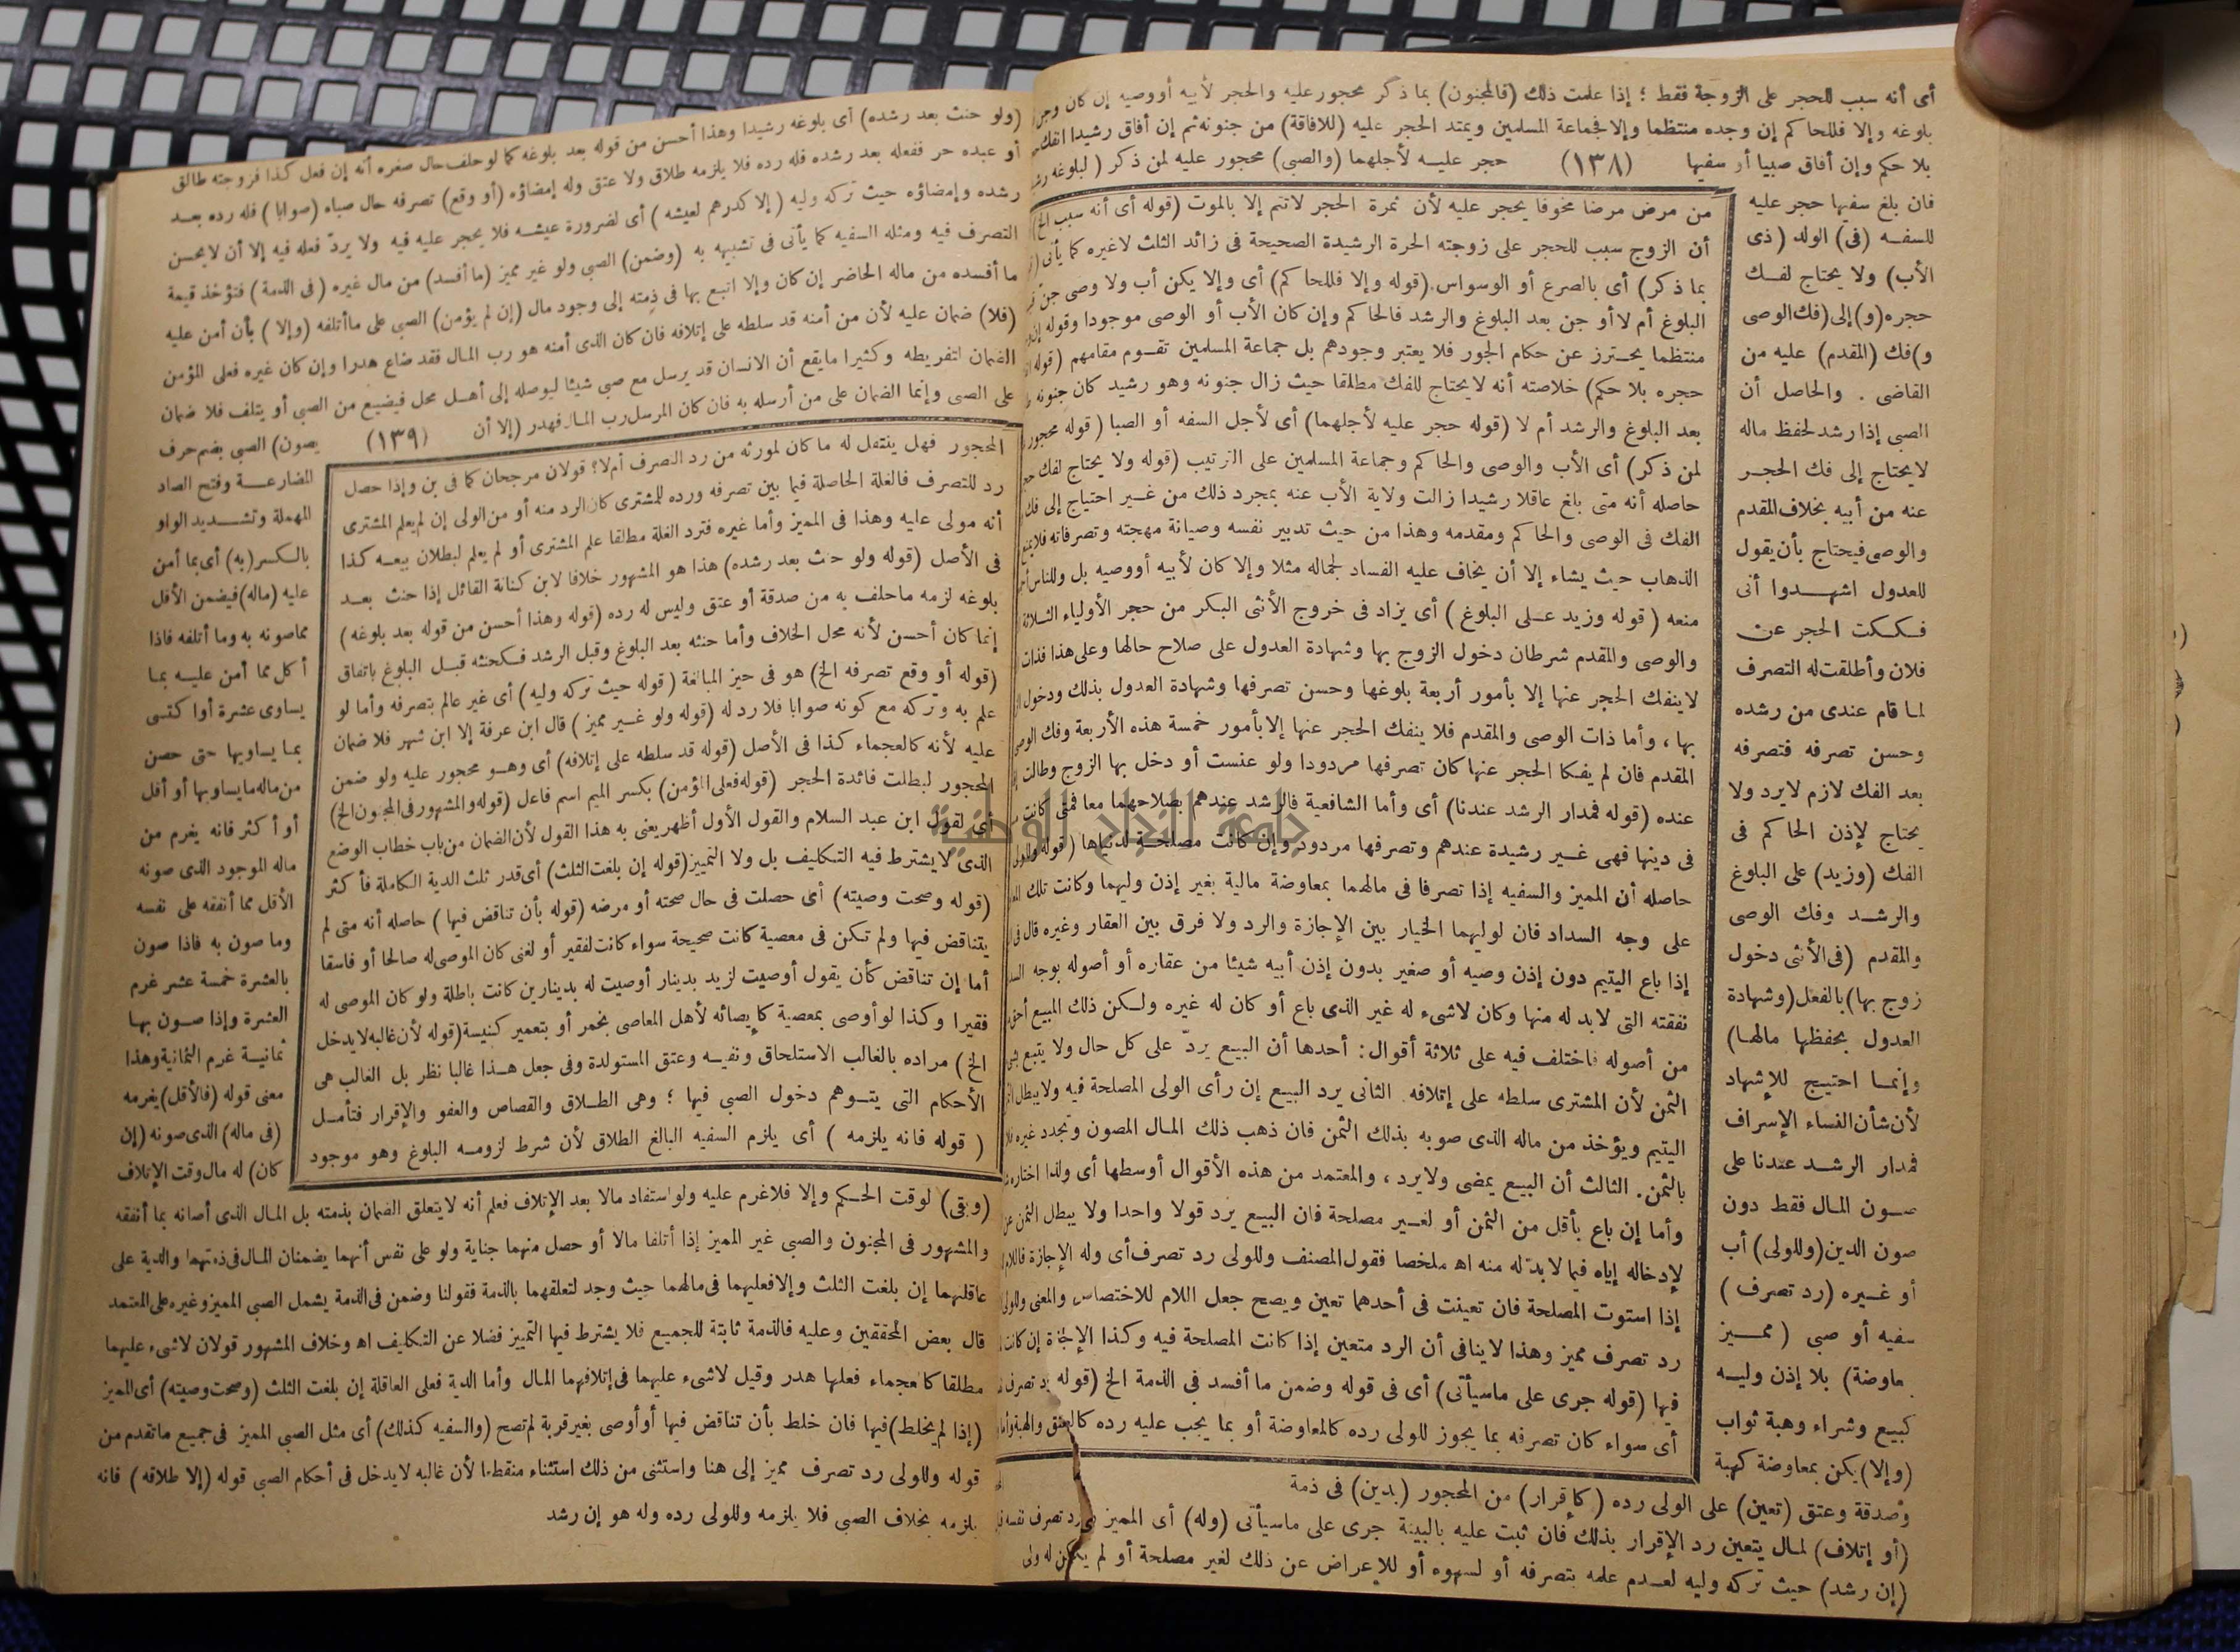 أى أنه سبب للحجر على الزوجة فقط ؛ إذا علمت ذلك (فالمجنون) بما ذكر محجور عليه والحجر لأبيه أووصيه إن كان وجن
بلوغه وإلا فللحاكم إن وجده منتظما وإلا فجماعة المسلمين ويمتد الحجر عليه (للافاقة) من جنونه ثم إن أفاق رشيدا انفك
بلا حكم وإن أفاق صبيا أو سفيها (١٣٨) حجر عليه لأجلهما (والصبى) محجور عليه لمن ذكر (لبلوغه
فان بلغ سفيها حجر عليه
للسفه (فى) الولد (ذى
الأب) ولا يحتاج لفك
حجره (و) إلى (فك الوصى
و) فك (المقدم) عليه من
القاضى . والحاصل أن
الصبى إذا رشد لحفظ ماله
لايحتاج إلى فك الحجر
عنه من أبيه بخلاف المقدم
والوصى فيحتاج بأن يقول
للعدول اشهدوا أنى
فككت الحجر عن
فلان وأطلقت له التصرف
لما قام عندى من رشده
وحسن تصرفه فتصرفه
بعد الفك لازم لايرد ولا
يحتاج لإذن الحاكم فى
الفك (وزيد) على البلوغ
والرشد وفك الوصى
والمقدم (فى الأنثى دخول
زوج بها) بالفعل (وشهادة
العدول بحفظها مالها)
وإنما احتيج للإشهاد
لأن شأن النساء الإسراف
فمدار الرشد عندنا على
صون المال فقط دون
صون الدين (وللولى) أب
أو غيره (رد تصرف)
سفيه أو صبى (مميز
بمعاوضة) بلا إذن وليه
كبيع وشراء وهبة ثواب
(وإلا) يكن بمعاوضة كهبة
وصدقة وعتق (تعين) على الولى رده (كإقرار) من المحجور (بدين) فى ذمة
(أو إتلاف) لمال يتعين رد الإقرار بذلك فان ثبت عليه بالبينة جرى على ماسيأتى (وله) أى المميز رد تصرف نفسه
(إن رشد) حيث تركه وليه لعدم علمه بتصرفه أو لسهوه أو للإعراض عن ذلك لغير مصلحة أو لم يكن له ولى
من مرض مرضا مخوفا يحجر عليه لأن ثمرة الحجر لاتتم إلا بالموت (قوله أى أنه سبب الخ)
أن الزوج سبب للحجر على زوجته الحرة الرشيدة الصحيحة فى زائد الثلث لاغيره كما يأتى
بما ذكر) أى بالصرع أو الوسواس (قوله وإلا فللحاكم) أى وإلا يكن أب ولا وصى جن
البلوغ أم لا أو جن بعد البلوغ والرشد فالحاكم وإن كان الأب أو الوصى موجودا وقوله
منتظما يحترز عن حكام الجور فلا يعتبر وجودهم بل جماعة المسلمين تقوم مقامهم (قوله
حجره بلا حكم) خلاصته أنه لايحتاج للفك مطلقا حيث زال جنونه وهو رشيد كان جنونه
بعد البلوغ والرشد أم لا (قوله حجر عليه لأجلهما) أى لأجل السفه أو الصبا (قوله محجور
لمن ذكر) أى الأب والوصى والحاكم وجماعة المسلمين على الترتيب (قوله ولا يحتاج لفك
حاصله أنه متى بلغ عاقلا رشيدا زالت ولاية الأب عنه بمجرد ذلك من غير احتياج إلى فك
الفك فى الوصى والحاكم ومقدمه وهذا من حيث تدبير نفسه وصيانة مهجته وتصرفاته فلا
الذهاب حيث يشاء إلا أن يخاف عليه الفساد لجماله مثلا وإلا كان لأبيه أووصيه بل وللناس
منعه (قوله وزيد على البلوغ) أى يزاد فى خروج الأنثى البكر من حجر الأولياء الثلاثة
والوصى والمقدم شرطان دخول الزوج بها وشهادة العدول على صلاح حالها وعلى هذا فذات
لاينفك الحجر عنها إلا بأمور أربعة بلوغها وحسن تصرفها وشهادة العدول بذلك ودخول
بها ، وأما ذات الوصى والمقدم فلا ينفك الحجر عنها إلا بأمور خمسة هذه الأربعة وفك الوصى
المقدم فان لم يفكا الحجر عنها كان تصرفها مردودا ولو عنست أو دخل بها الزوج وطالت
عنده (قوله فمدار الرشد عندنا) أى وأما الشافعية فالرشد عندهم بصلاحهما معا فمتى كانت
فى دينها فهى غير رشيدة عندهم وتصرفها مردود وإن كانت مصلحة لدنياها (قوله وللولى
حاصله أن المميز والسفيه إذا تصرفا فى مالهما بمعاوضة مالية بغير إذن وليهما وكانت تلك
على وجه السداد فان لوليهما الخيار بين الإجازة والرد ولا فرق بين العقار وغيره قال فى
إذا باع اليتيم دون إذن وصيه أو صغير بدون إذن أبيه شيئا من عقاره أو أصوله بوجه
نفقته التى لابد له منها وكان لاشىء له غير الذى باع أو كان له غيره ولكن ذلك المبيع أحق
من أصوله فاختلف فيه على ثلاثة أقوال : أحدها أن البيع يرد على كل حال ولا يتبع
الثمن لأن المشترى سلطه على إتلافه . الثانى يرد البيع إن رأى الولى المصلحة فيه ولا يبطل
اليتيم ويؤخذ من ماله الذى صوبه بذلك الثمن فان ذهب ذلك المال المصون وتجدد غيره
بالثمن . الثالث أن البيع يمضى ولايرد ، والمعتمد من هذه الأقوال أوسطها أى ولذا اختاره
وأما إن باع بأقل من الثمن أو لغير مصلحة فان البيع يرد قولا واحدا ولا يبطل الثمن عن
لإدخاله إياه فيما لابد له منه اه ملخصا فقول المصنف وللولى رد تصرف أى وله الإجازة فاللام
إذا استوت المصلحة فان تعينت فى أحدهما تعين ويصح جعل اللام للاختصاص والمعنى وللولى
رد تصرف مميز وهذا لاينافى أن الرد متعين إذا كانت المصلحة فيه وكذا الإجازة إن كانت
فيها (قوله جرى على ماسيأتى) أى فى قوله وضمن ما أفسد فى الذمة الخ (قوله رد تصرف
أى سواء كان تصرفه بما يجوز للولى رده كالمعاوضة أو بما يجب عليه رده كالعتق والهبة
(ولو حنث بعد رشده) أى بلوغه رشيدا وهذا أحسن من قوله بعد بلوغه كما لو حلف حال صغره أنه إن فعل كذا فزوجته طالق
أو عبده حر ففعله بعد رشده فله رده فلا يلزمه طلاق ولا عتق وله إمضاؤه (أو وقع) تصرفه حال صباه (صوابا) فله رده بعد
رشده وإمضاؤه حيث تركه وليه (إلا كدرهم لعيشه) أى لضرورة عيشه فلا يحجر عليه فيه ولا يرد فعله فيه إلا أن لايحسن
التصرف فيه ومثله السفيه كما يأتى فى تشبيهه به (وضمن) الصبى ولو غير مميز (ما أفسد) من مال غيره (فى الذمة) فتؤخذ قيمة
ما أفسده من ماله الحاضر إن كان وإلا اتبع بها فى ذمته إلى وجود مال (إن لم يؤمن) الصبى على ما أتلفه (وإلا) بأن أمن عليه
(فلا) ضمان عليه لأن من أمنه قد سلطه على إتلافه فان كان الذى أمنه هو رب المال فقد ضاع هدرا وإن كان غيره فعلى المؤمن
الضمان لتفريطه وكثيرا مايقع أن الانسان قد يرسل مع صبى شيئا ليوصله إلى أهل محل فيضيع من الصبى أو يتلف فلا ضمان
على الصبى وإنما الضمان على من أرسله به فان كان المرسل رب المال فهدر (إلا أن (١٣٩) يصون) الصبى بضم حرف
المضارعة وفتح الصاد
المهملة وتشديد الواو
بالكسر (به) أى بما أمن
عليه (ماله) فيضمن الأقل
مماصونه به وما أتلفه فاذا
أكل مما أمن عليه بما
يساوى عشرة أوا كتسى
بما يساويها حتى حصن
من ماله مايساويها أو أقل
أو أكثر فانه يغرم من
ماله الموجود الذى صونه
الأقل مما أنفقه على نفسه
وما صون به فاذا صون
بالعشرة خمسة عشر غرم
العشرة وإذا صون بها
ثمانية غرم الثمانية وهذا
معنى قوله (فالأقل) يغرمه
(فى ماله) الذى صونه (إن
كان) له مال وقت الإتلاف
(وبقى) لوقت الحكم وإلا فلا غرم عليه ولو استفاد مالا بعد الإتلاف فعلم أنه لايتعلق الضمان بذمته بل المال الذى أصانه بما أنفقه
والمشهور فى المجنون والصبى غير المميز إذا أتلفا مالا أو حصل منهما جناية ولو على نفس أنهما يضمنان المال فى ذمتهما والدية على
عاقلتهما إن بلغت الثلث وإلا فعليهما فى مالهما حيث وجد لتعلقهما بالذمة فقولنا وضمن فى الذمة يشمل الصبى المميز وغيره على المعتمد
قال بعض المحققين وعليه فالذمة ثابتة للجميع فلا يشترط فيها التمييز فضلا عن التكليف اه وخلاف المشهور قولان لاشىء عليهما
مطلقا كالعجماء فعلها هدر وقيل لاشىء عليهما فى إتلافهما المال وأما الدية فعلى العاقلة إن بلغت الثلث (وصحت وصيته) أى المميز
(إذا لم يخلط) فيها فان خلط بأن تناقض فيها أو أوصى بغير قربة لم تصح (والسفيه كذلك) أى مثل الصبى المميز فى جميع ماتقدم من
قوله وللولى رد تصرف مميز إلى هنا واستثنى من ذلك استثناء منقطعا لأن غالبه لايدخل فى أحكام الصبى قوله (إلا طلاقه) فانه
يلزمه بخلاف الصبى فلا يلزمه وللولى رده وله هو إن رشد
المحجور فهل ينتقل له ماكان لمورثه من رد التصرف أم لا؟ قولان مرجحان كما فى بن وإذا حصل
رد للتصرف فالغلة الحاصلة فيما بين تصرفه ورده للمشترى كان الرد منه أو من الولى إن لم يعلم المشترى
أنه مولى عليه وهذا فى المميز وأما غيره فترد الغلة مطلقا علم المشترى أو لم يعلم لبطلان بيعه كذا
فى الأصل (قوله ولو حنث بعد رشده) هذا هو المشهور خلافا لابن كنانة القائل إذا حنث بعد
بلوغه لزمه ماحلف به من صدقة أو عتق وليس له رده (قوله وهذا أحسن من قوله بعد بلوغه)
إنما كان أحسن لأنه محل الخلاف وأما حنثه بعد البلوغ وقبل الرشد فكحنثه قبل البلوغ باتفاق
(قوله أو وقع تصرفه الخ) هو فى حيز المبالغة (قوله حيث تركه وليه) أى غير عالم بتصرفه وأما لو
علم به وتركه مع كونه صوابا فلا رد له (قوله ولو غير مميز) قال ابن عرفة إلا ابن شهر فلا ضمان
عليه لأنه كالعجماء كذا فى الأصل (قوله قد سلطه على إتلافه) أى وهو محجور عليه ولو ضمن
المحجور لبطلت فائدة الحجر (قوله فعلى المؤمن) بكسر الميم اسم فاعل (قوله والمشهور فى المجنون الخ)
أى لقول ابن عبد السلام والقول الأول أظهر يعنى به هذا القول لأن الضمان من باب خطاب الوضع
الذى لايشترط فيه التكليف بل ولا التمييز (قوله إن بلغت الثلث) أى قدر ثلث الدية الكاملة فأكثر
(قوله وصحت وصيته) أى حصلت فى حال صحته أو مرضه (قوله بأن تناقض فيها) حاصله أنه متى لم
يتناقض فيها ولم تكن فى معصية كانت صحيحة سواء كانت لفقير أو لغنى كان الموصى له صالحا أو فاسقا
أما إن تناقض كأن يقول أوصيت لزيد بدينار أوصيت له بدينارين كانت باطلة ولو كان الموصى له
فقيرا وكذا لو أوصى بمعصية كإيصائه لأهل المعاصى بخمر أو بتعمير كنيسة (قوله لأن غالبه لايدخل
الخ) مراده بالغالب الاستلحاق ونفيه وعتق المستولدة وفى جعل هذا غالبا نظر بل الغالب هى
الأحكام التى يتوهم دخول الصبى فيها ؛ وهى الطلاق والقصاص والعفو والإقرار فتأمل
(قوله فانه يلزمه) أى يلزم السفيه البالغ الطلاق لأن شرط لزومه البلوغ وهو موجود
جامعة النجاح الوطنية